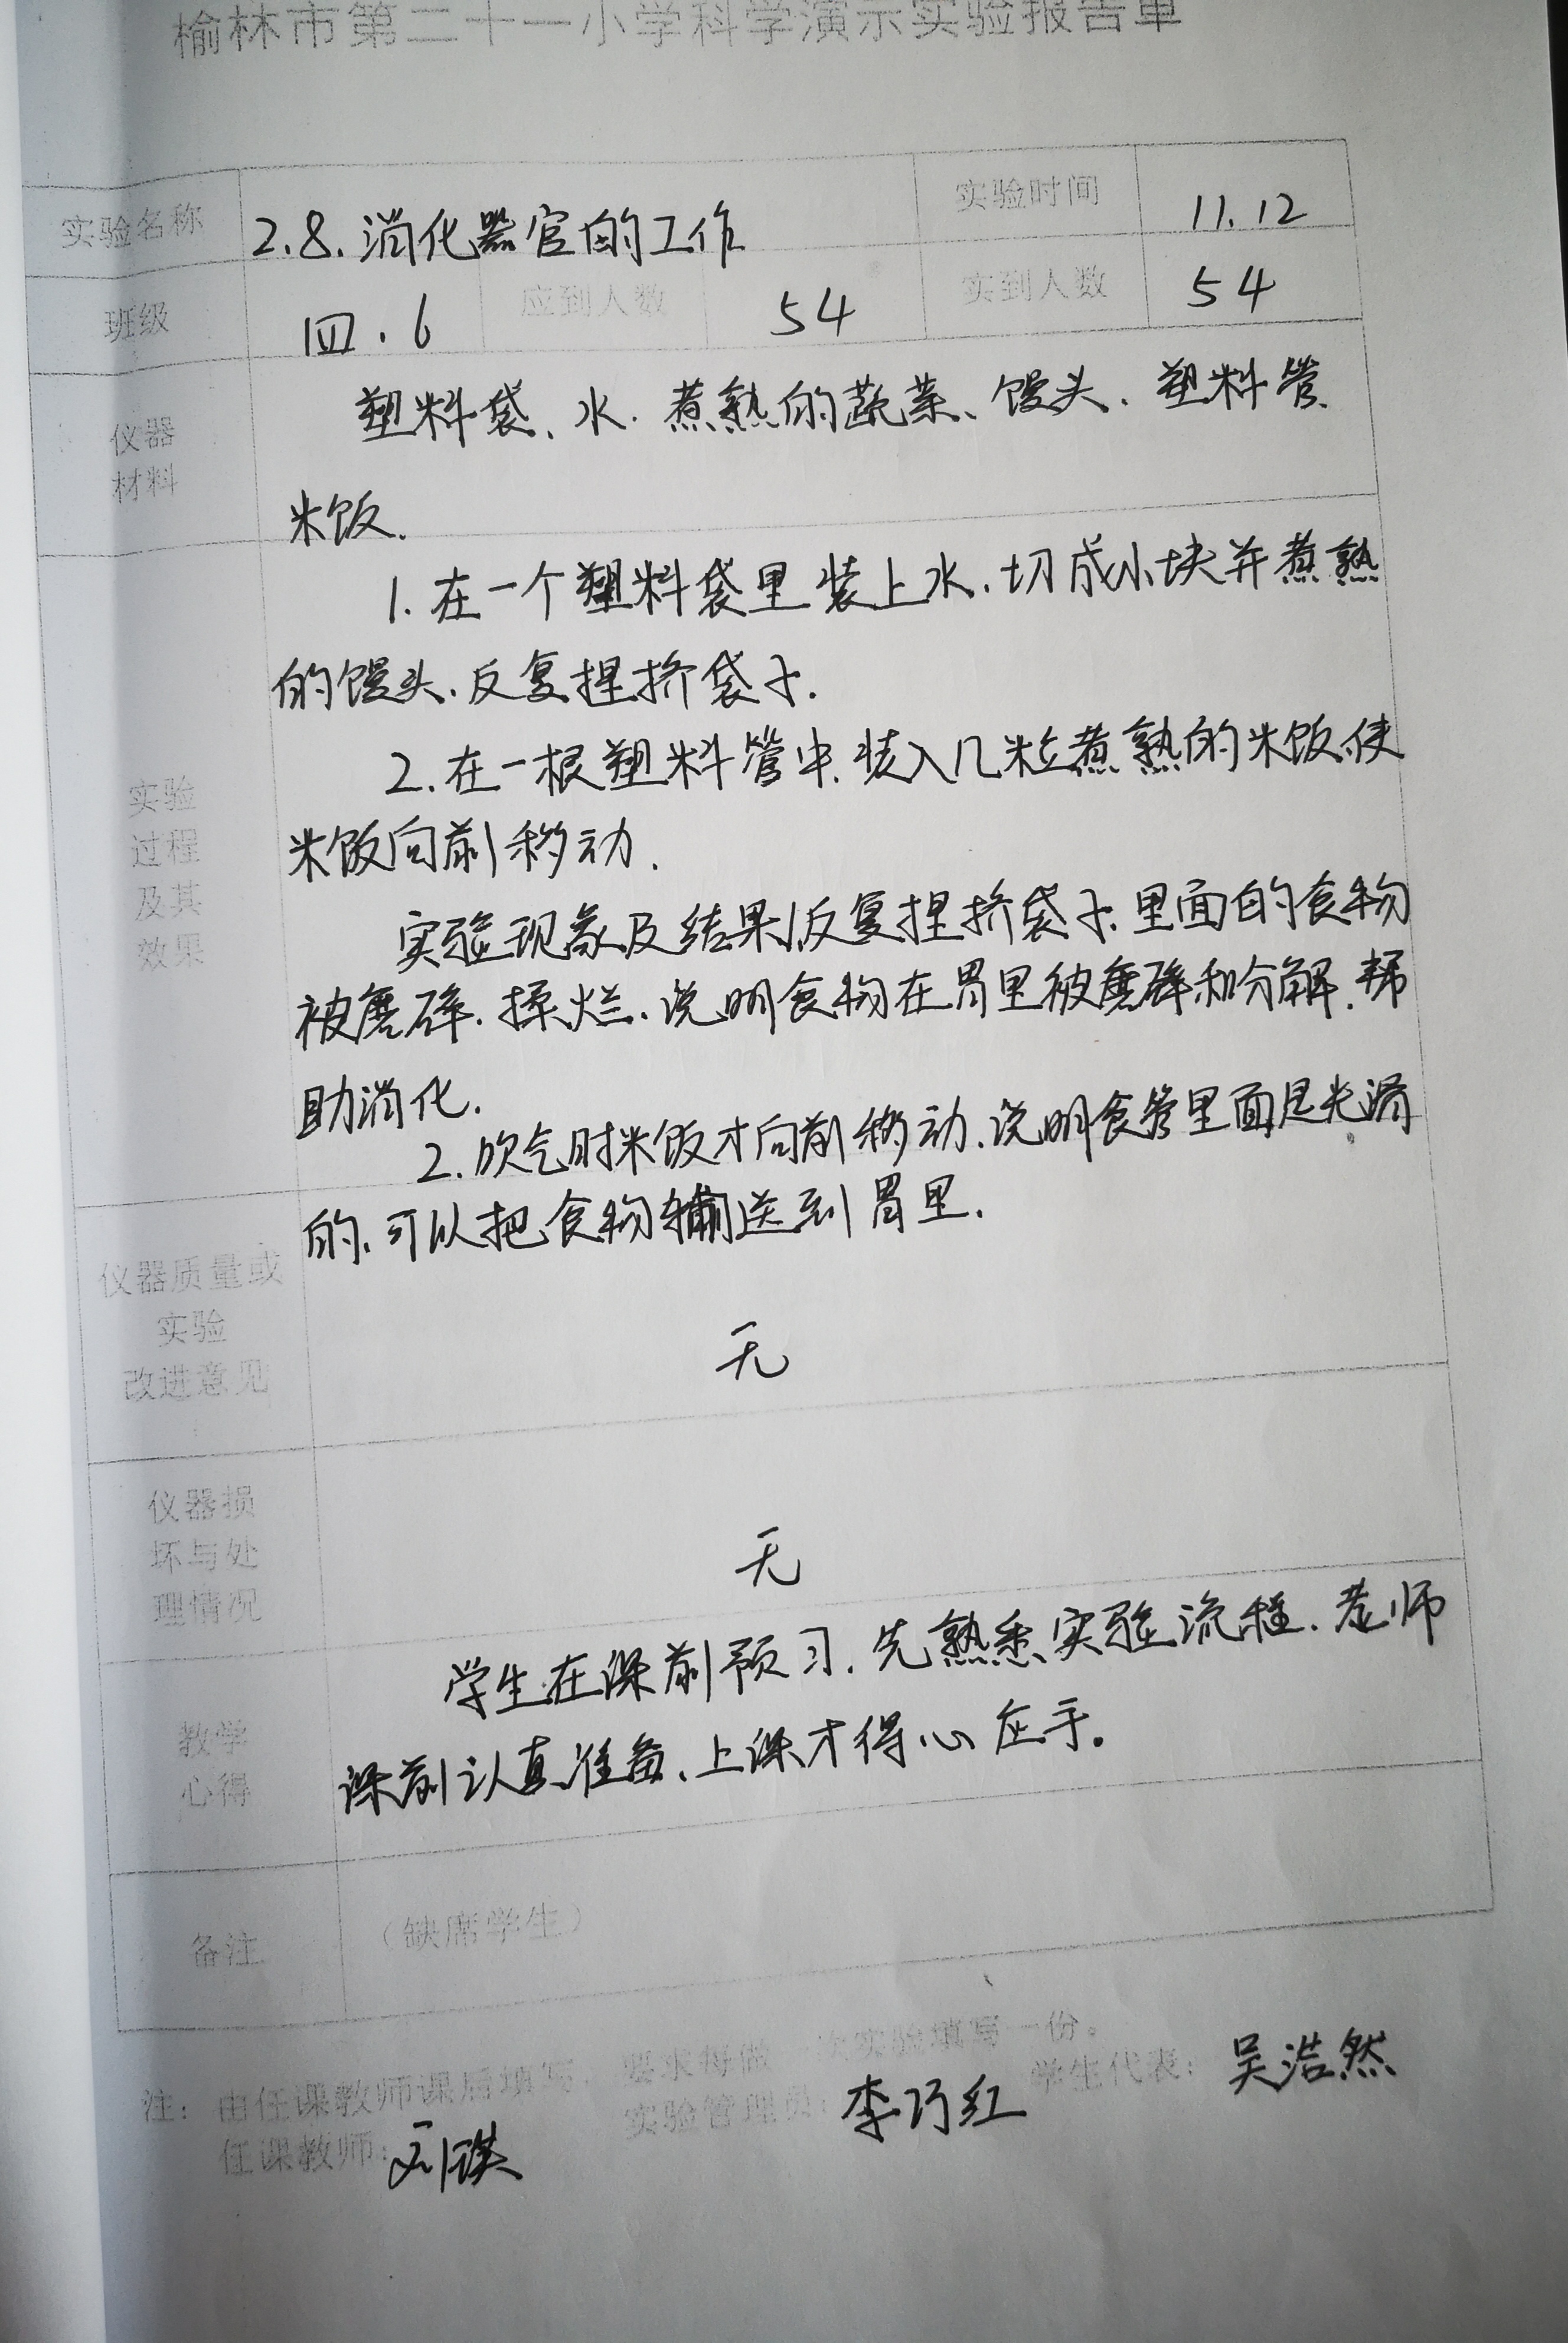 榆林市第二十一小学科学演示实验报告单
实验名称 2.8.消化器官的工作 实验时间 11.12
班级 四.6 应到人数 54 实到人数 54
仪器
材料
塑料袋、水.煮熟的蔬菜、馒头.塑料管、
米饭.
实验
过程
及其
效果
1.在一个塑料袋里装上水.切成小块并煮熟
的馒头.反复捏挤袋子.
2.在一根塑料管中.装入几粒煮熟的米饭.使
米饭向前移动.
实验现象及结果1.反复捏挤袋子.里面的食物
被磨碎.揉烂.说明食物在胃里被磨碎和分解.帮
助消化.
2.吹气时米饭才向前移动.说明食管里面是光滑
的.可以把食物输送到胃里.
仪器质量或
实验
改进意见
无
仪器损
坏与处
理情况
无
教学
心得
学生在课前预习.先熟悉实验流程.老师
课前认真准备.上课才得心应手。
备注 (缺席学生)
注:由任课教师课后填写,要求每做一次实验填写一份。
任课教师: 刘祺 实验管理员: 李巧红 学生代表: 吴浩然